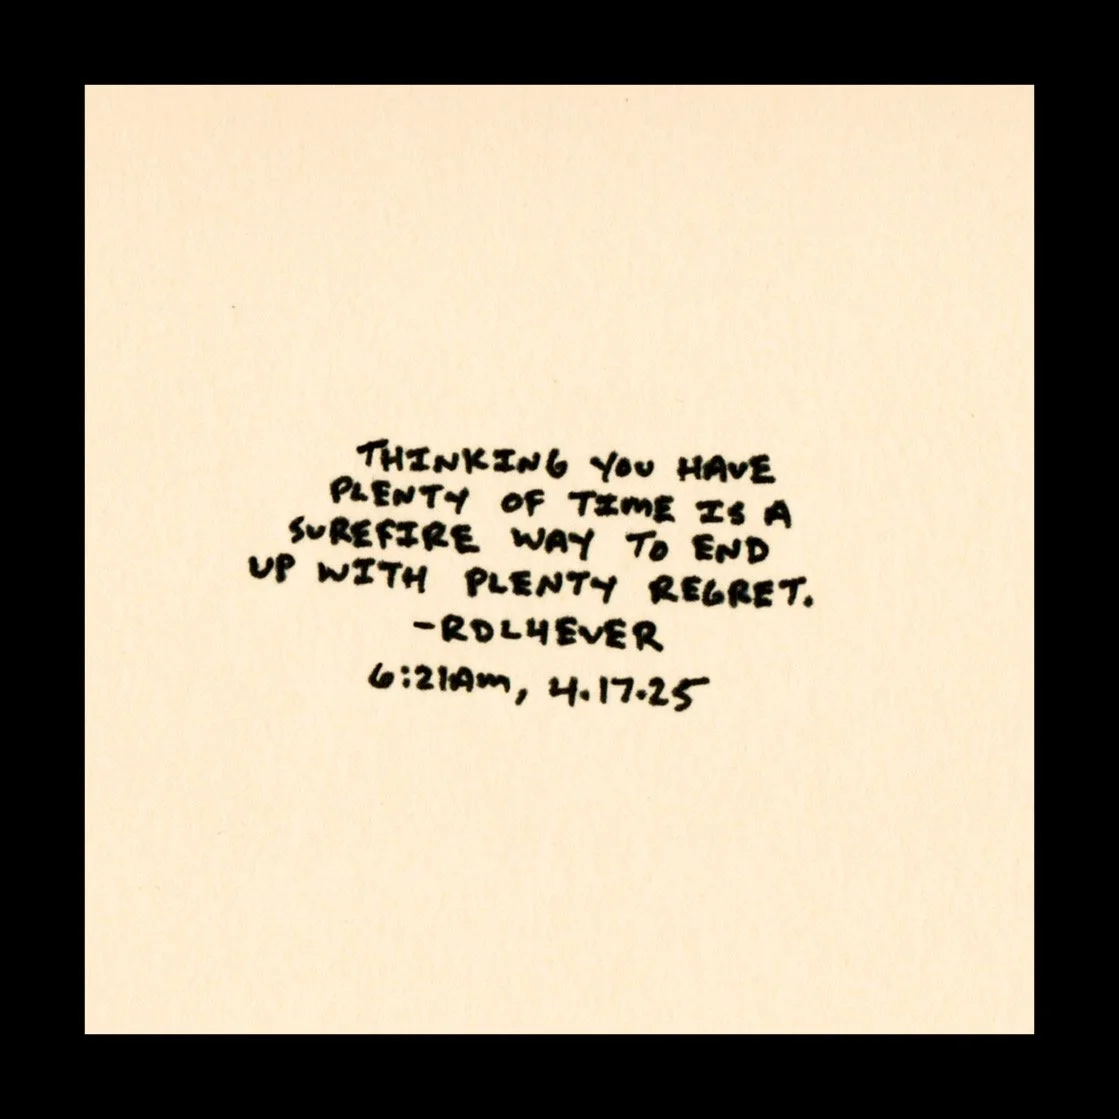 THINKING YOU HAVE
PLENTY OF TIME IS A
SUREFIRE WAY TO END
UP WITH PLENTY REGRET.
-RDL4EVER
6:21AM, 4.17.25